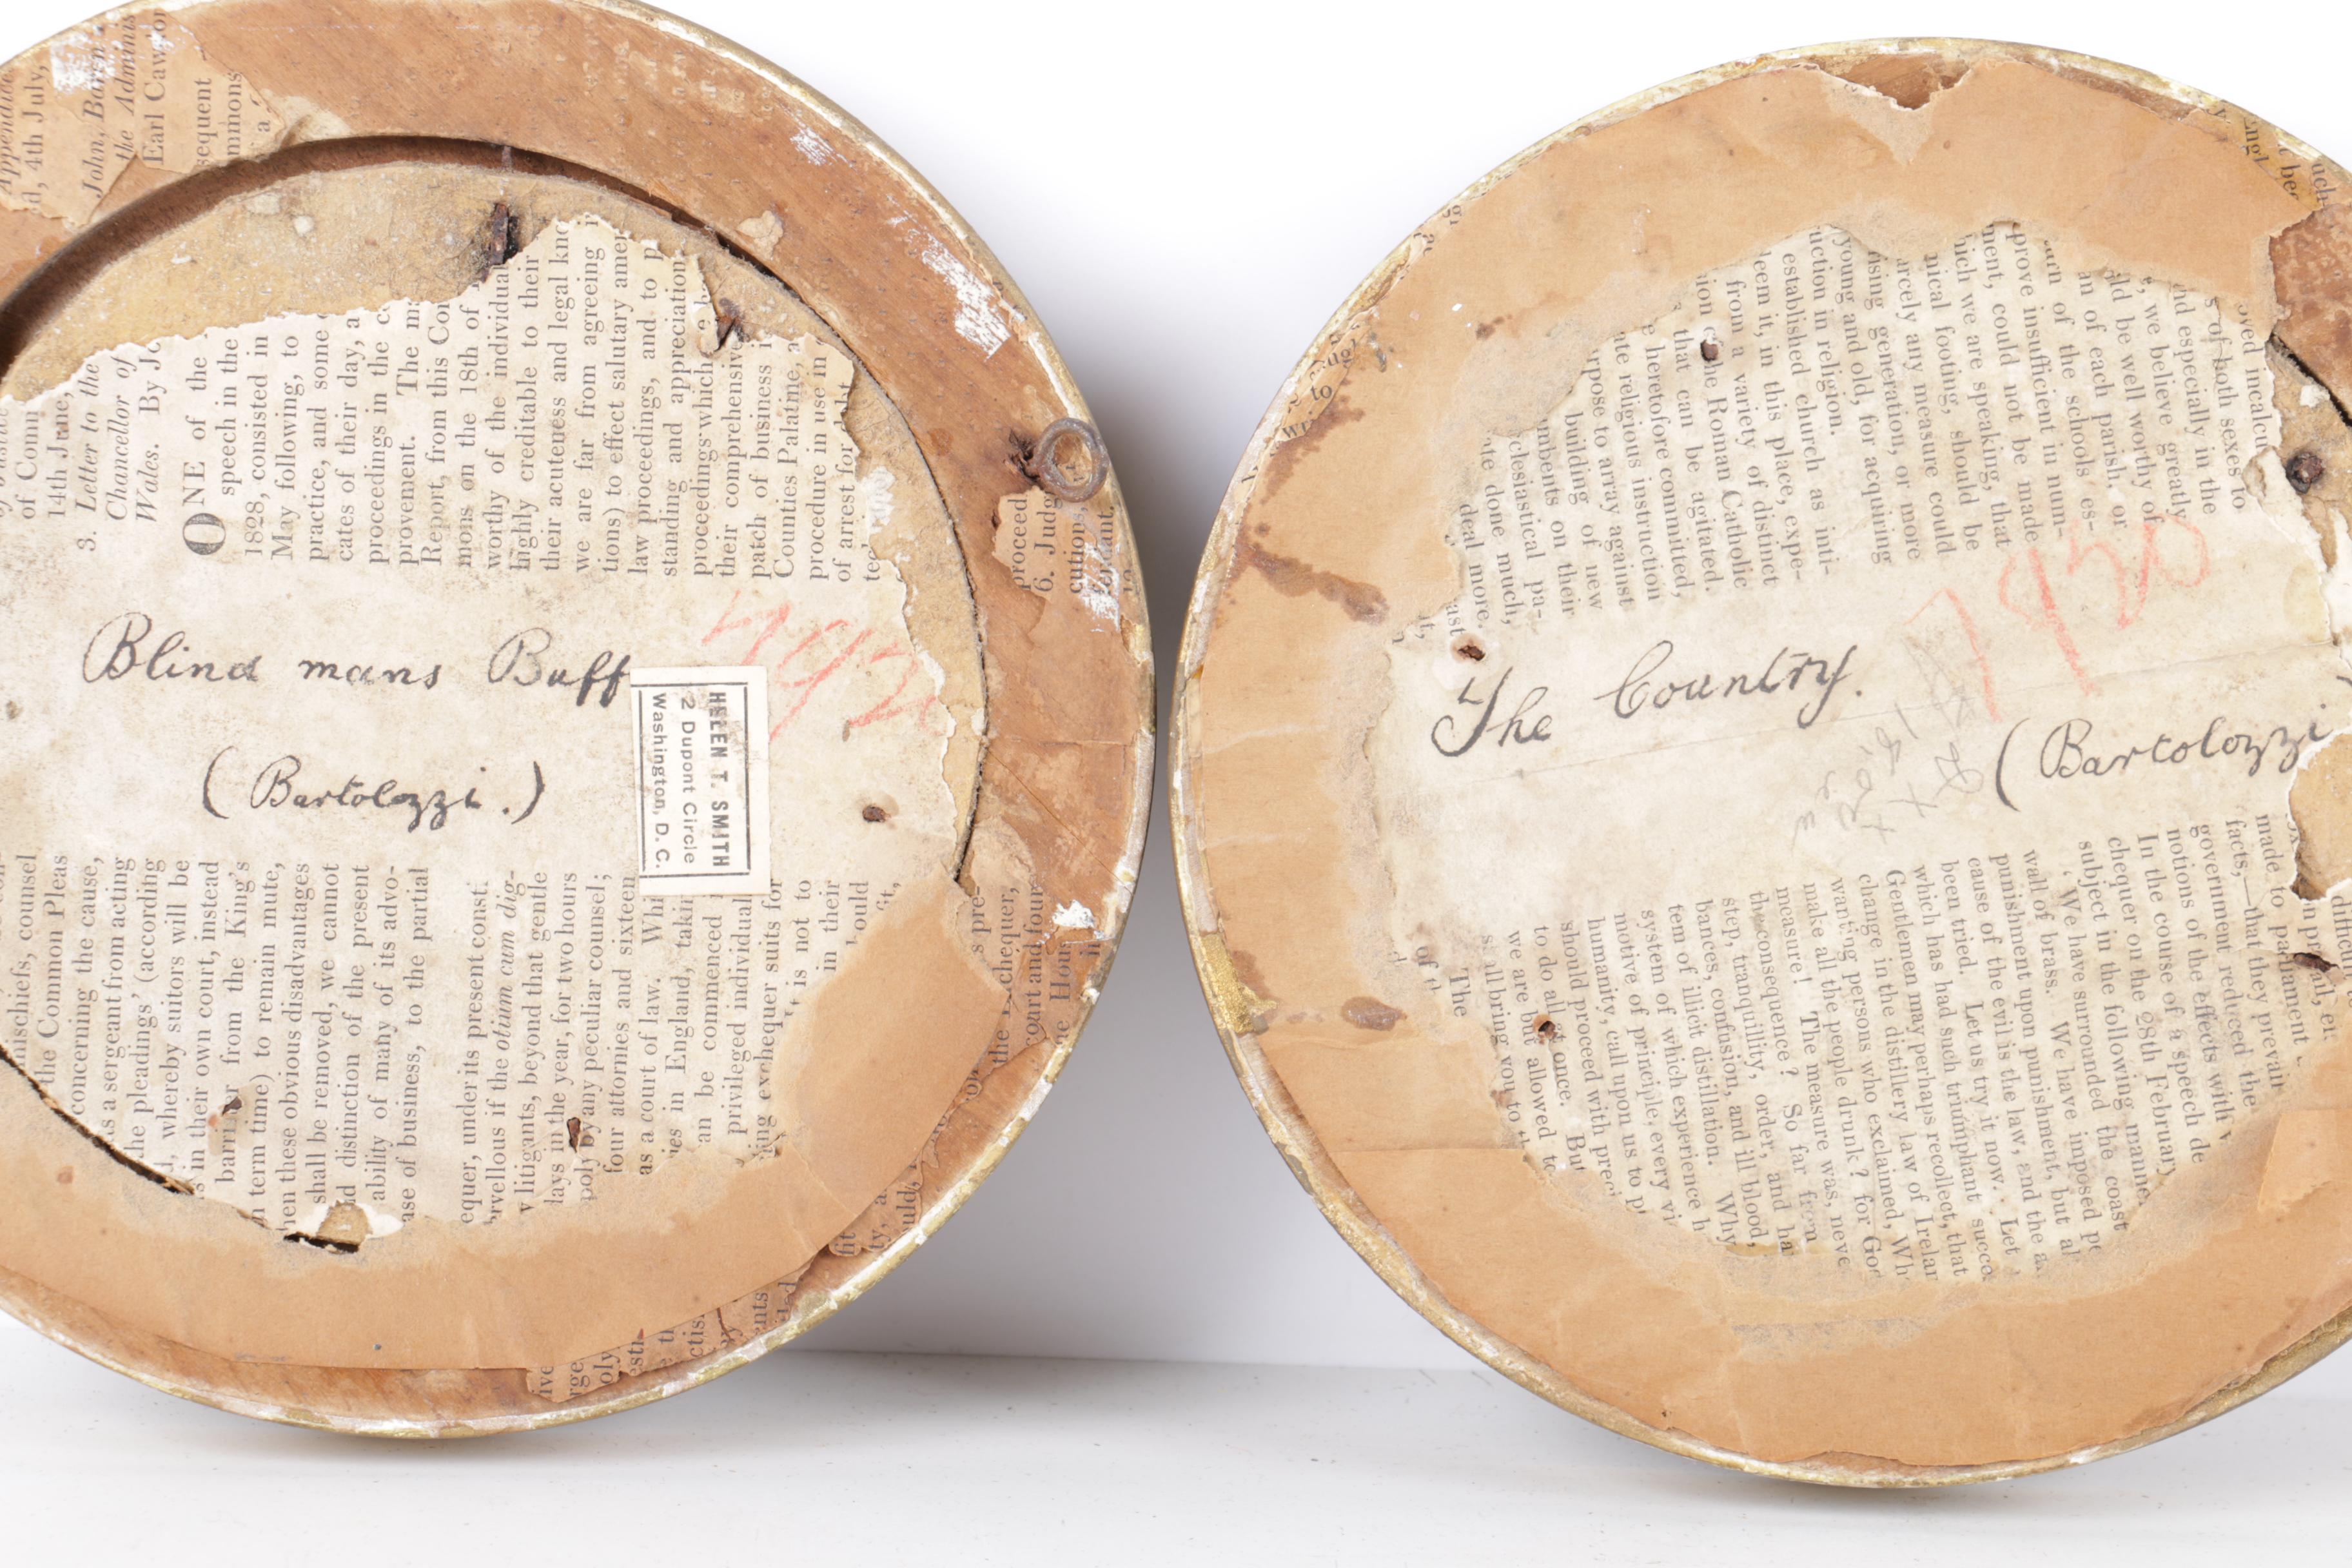 Appendice
d, 4th July,
John, Baron
the Adminis
Earl Cawdor
sequent
mmons
of Comm
14th June,
3. Letter to the
Chancellor of
Wales. By Jo
ONE of the
speech in the
1828, consisted in
May following, to
practice, and some
cates of their day, a
proceedings in the co
provement. The ma
Report, from this Com
mons on the 18th of
worthy of the individual
highly creditable to their
their acuteness and legal kno
we are far from agreeing
tions) to effect salutary amen
law proceedings, and to p
standing and appreciation
proceedings which
their comprehensive
patch of business i
Counties Palatine, a
procedure in use in
of arrest for debt
proceed
6. Judg
cutions,
Blind mans Buff
(Bartolozzi.)
HELEN T. SMITH
2 Dupont Circle
Washington, D. C.
mischiefs, counsel
the Common Pleas
concerning the cause,
as a sergeant from acting
he pleadings' (according
d, whereby suitors will be
s in their own court, instead
barrister from the King's
n term time) to remain mute,
hen these obvious disadvantages
shall be removed, we cannot
nd distinction of the present
ability of many of its advo-
ase of business, to the partial
equer, under its present const.
rvellous if the otium cum dig-
y litigants, beyond that gentle
lays in the year, for two hours
poly by any peculiar counsel;
four attornies and sixteen
as a court of law. Whi
ies in England, takin
an be commenced
privileged individual
ing exchequer suits for
It is not to
in their
ould
fit,
s pre-
the Exchequer,
court and four
the Hous
of both sexes to
nd especially in the
e, we believe greatly
ld be well worthy of
an of each parish, or
arn of the schools es-
prove insufficient in num-
ment, could not be made
hich we are speaking, that
nical footing, should be
arcely any measure could
ising generation, or more
young and old, for acquiring
uction in religion.
established church as inti-
leem it, in this place, expe-
from a variety of distinct
ion of the Roman Catholic
that can be agitated.
e heretofore committed,
ate religious instruction
rpose to array against
building of new
mbents on their
clesiastical pa-
ate done much,
deal more.
ast
The Country.
(Bartolozzi
made to parliament
facts,—that they prevail
government reduced the
notions of the effects with
chequer on the 28th February
In the course of a speech de
subject in the following manne
'We have surrounded the coast
wall of brass. We have imposed pe
punishment upon punishment, but al
cause of the evil is the law, and the a
been tried. Let us try it now. Let
which has had such triumphant succe
Gentlemen may perhaps recollect, that
change in the distillery law of Irelan
wanting persons who exclaimed, Wh
make all the people drunk? for Go
measure! The measure was, neve
the consequence? So far from
step, tranquillity, order, and ha
bances, confusion, and ill blood,
tem of illicit distillation. Why
system of which experience h
motive of principle, every vi
humanity, call upon us to p
should proceed with preci
to do all at once. But
we are but allowed to
s all bring you to th
The
of t